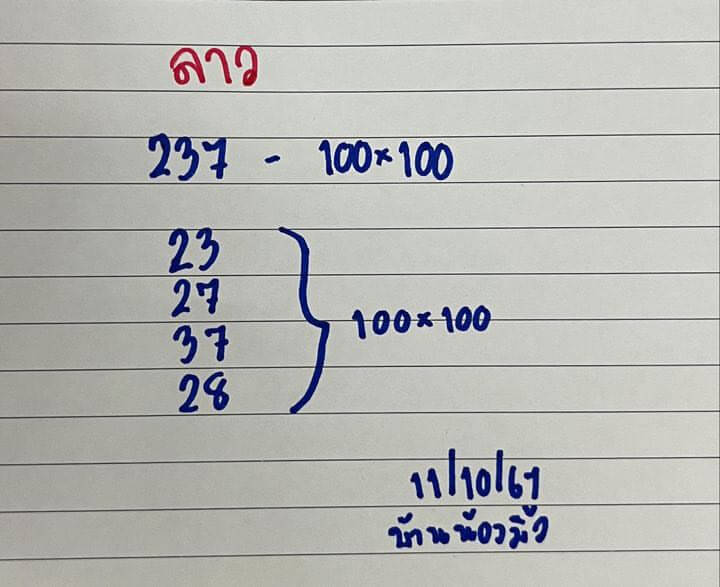 ลาว
237 - 100×100
23
27
37
28
100×100
11/10/67
บ้านน้องมิ้ว